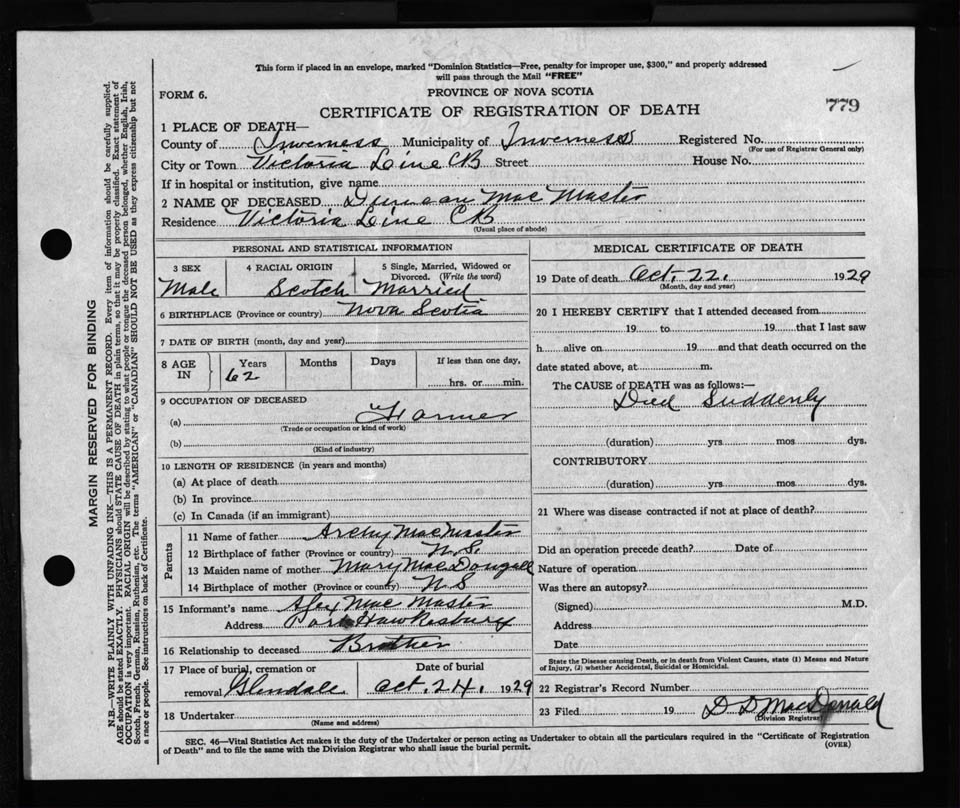 This form if placed in an envelope, marked "Dominion Statistics—Free, penalty for improper use, $300," and properly addressed
will pass through the Mail "FREE"
FORM 6.
PROVINCE OF NOVA SCOTIA
779
CERTIFICATE OF REGISTRATION OF DEATH
1 PLACE OF DEATH—
County of Inverness Municipality of Inverness Registered No.
(For use of Registrar General only)
City or Town Victoria Line CB Street House No.
If in hospital or institution, give name
2 NAME OF DECEASED Duncan MacMaster
Residence Victoria Line CB
(Usual place of abode)
PERSONAL AND STATISTICAL INFORMATION
3 SEX 4 RACIAL ORIGIN 5 Single, Married, Widowed or Divorced. (Write the word)
Male Scotch Married
6 BIRTHPLACE (Province or country) Nova Scotia
7 DATE OF BIRTH (month, day and year)
8 AGE IN Years Months Days If less than one day,
62 hrs. or min.
9 OCCUPATION OF DECEASED
(a) Farmer
(Trade or occupation or kind of work)
(b)
(Kind of industry)
10 LENGTH OF RESIDENCE (in years and months)
(a) At place of death
(b) In province
(c) In Canada (if an immigrant)
Parents
11 Name of father Archy MacMaster
12 Birthplace of father (Province or country) N.S.
13 Maiden name of mother Mary MacDougall
14 Birthplace of mother (Province or country) N.S
15 Informant's name Alex MacMaster
Address Port Hawkesbury
16 Relationship to deceased Brother
17 Place of burial, cremation or Date of burial
removal Glendale Oct. 24. 1929
18 Undertaker
(Name and address)
MEDICAL CERTIFICATE OF DEATH
19 Date of death Oct. 22. 1929
(Month, day and year)
20 I HEREBY CERTIFY that I attended deceased from
19 to 19 that I last saw
h alive on 19 and that death occurred on the
date stated above, at m.
The CAUSE of DEATH was as follows:—
Died Suddenly
(duration) yrs mos dys.
CONTRIBUTORY
(duration) yrs. mos dys.
21 Where was disease contracted if not at place of death?
Did an operation precede death? Date of
Nature of operation
Was there an autopsy?
(Signed) M.D.
Address
Date
State the Disease causing Death, or in death from Violent Causes, state (1) Means and Nature
of Injury, (2) whether Accidental, Suicidal or Homicidal.
22 Registrar's Record Number
23 Filed 19 D D MacDonald
(Division Registrar)
SEC. 46—Vital Statistics Act makes it the duty of the Undertaker or person acting as Undertaker to obtain all the particulars required in the "Certificate of Registration
of Death" and to file the same with the Division Registrar who shall issue the burial permit.
(OVER)
MARGIN RESERVED FOR BINDING
N.B.—WRITE PLAINLY WITH UNFADING INK—THIS IS A PERMANENT RECORD. Every item of information should be carefully supplied.
AGE should be stated EXACTLY. PHYSICIANS should STATE CAUSE OF DEATH in plain terms, so that it may be properly classified. Exact statement of
OCCUPATION is very important. RACIAL ORIGIN will be described by stating to what people or tongue the deceased person belonged, whether English, Irish,
Scotch, French, German, Russian, Ruthenian, etc. The terms "AMERICAN" or "CANADIAN" SHOULD NOT BE USED as they express citizenship but not
a race or people. See instructions on back of Certificate.